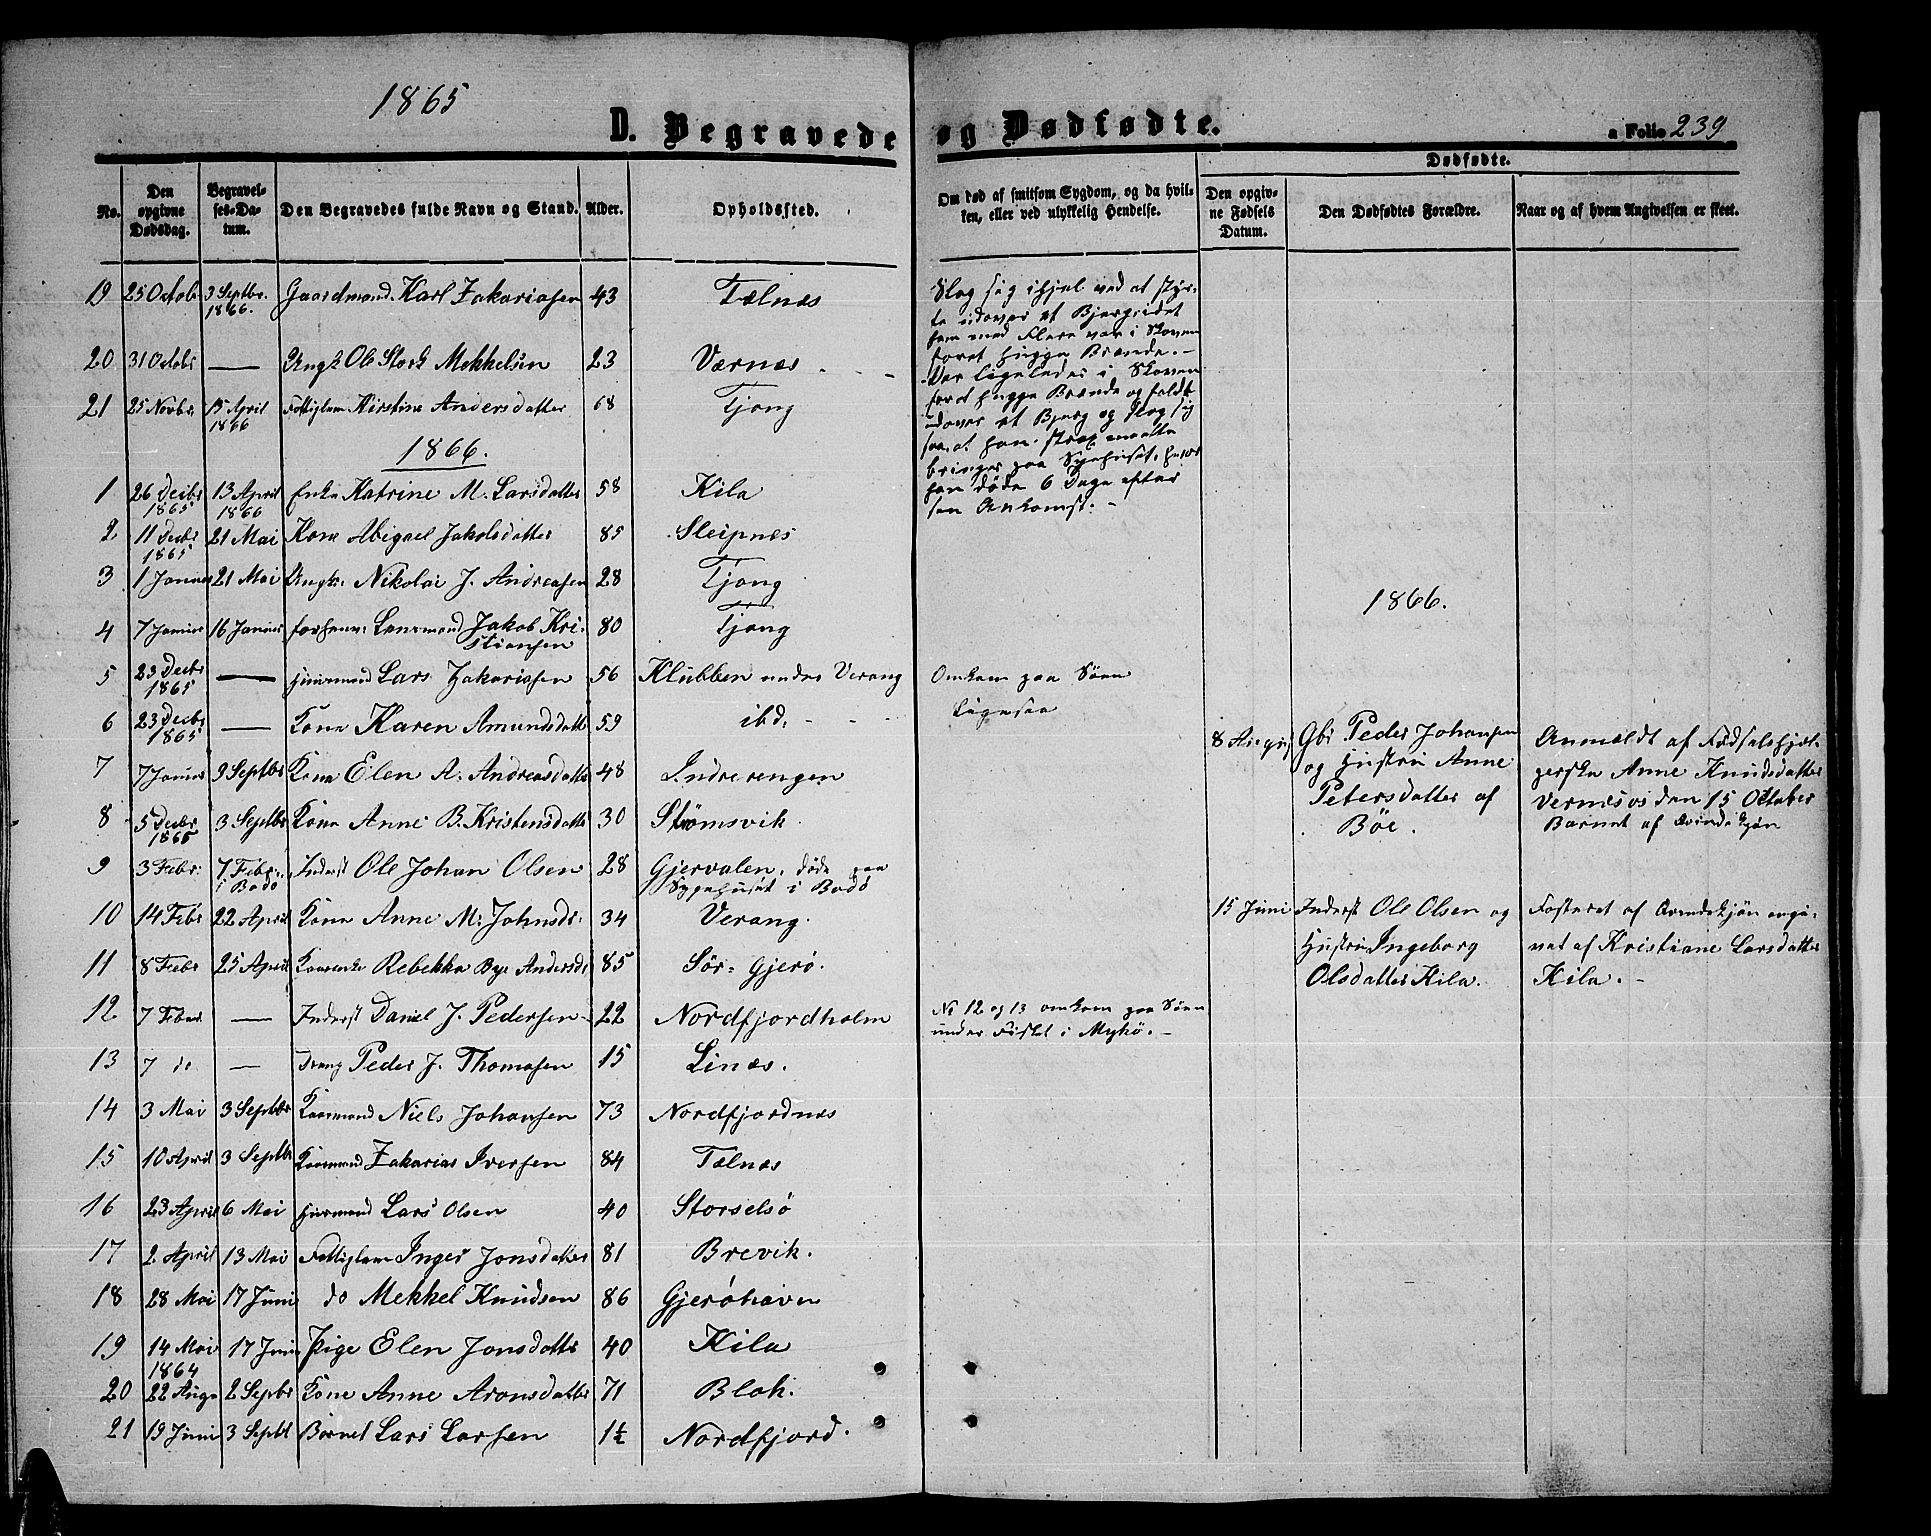 1865
D. Begravede og Dødfødte.
a Folio 239
No.
Den opgivne Dødsdag.
Begravelses-Datum.
Den Begravedes fulde Navn og Stand.
Alder.
Opholdssted.
Om død af smitsom Sygdom, og da hvilken, eller ved ulykkelig Hendelse.
Dødfødte.
Den opgivne Fødsels Datum.
Den Dødfødtes Forældre.
Naar og af hvem Angivelsen er skeet.
19 25 Octob 3 Septbr. 1866. Gaardmand Karl Zakariasen 43 Telnæs
20 31 Octobr — Ungk Ole Stork Mekkelsen 23 Værnæs
21 25 Novbr. 15 April 1866 Fattiglem Kirstine Andersdatter 68 Tjong
Slog sig ihjel ved at styr-
te udover et Bjerg idet
han med Flere var i Skoven
forat hugge Brænde. -
Var ligeledes i Skoven
forat hugge Brænde og faldt
udover et Bjerg og slog sig
saa at han strax maatte
bringes paa Sygehuset, hvor
han døde 6 Dage efter
sin Ankomst. -
1866.
1 26 Decbr 1865 13 April 1866 Enke Katrine M. Larsdatter 58 Kila
2 11 Decbr 1865 21 Mai Kone Abigael Jakobsdatter 85 Sleipnes
3 1 Januar 21 Mai Ungk. Nikolai J. Andreasen 28 Tjong
4 7 Januar 16 Januar forhenv. Lensmand Jakob Kri-
stiansen 80 Tjong
5 23 Decbr 1865 — Huusmand Lars Zakariasen 56 Klubben under Verang Omkom paa Søen
6 23 Decbr 1865 — Kone Karen Amundsdatter 59 ibd. Ligesaa
7 7 Januar 9 Septbr Kone Elen A. Andreasdatter 48 Indreengen
8 5 Decbr 1865 3 Septbr Kone Anne B. Kristensdatter 30 Strømsvik
9 3 Febr: 7 Febr. i Bodø Inderst Ole Johan Olsen 28 Gjervalen, døde paa
Sygehuset i Bodø
10 14 Febr 22 April Kone Anne M. Johnsdr. 34 Verang.
11 8 Febr 25 April Kaarenke Rebekka Bye Andersd. 85 Sør-Gjerø.
12 7 Febr — Inderst Daniel J. Pedersen 22 Nordfjordholm No 12 og 13 omkom paa Søen
under Fisket i Mykø. -
13 7 do — Dreng Peder J. Thomasen 15 Linæs.
14 3 Mai 3 Septbr Kaarmand Niels Johansen 73 Nordfjordnæs
15 10 April 3 Septbr Kaarmand Zakarias Iversen 84 Telnæs
16 23 April 6 Mai Huusmand Lars Olsen 40 Storselsø
17 2 April 13 Mai Fattiglem Inger Jonsdatter 81 Brevik.
18 28 Mai 17 Juni do Mekkel Knudsen 86 Gjerøhavn
19 14 Mai 1864 17 Juni Pige Elen Jonsdatter 40 Kila
20 22 Aug 2 Septbr Kone Anne Aronsdatter 71 Blok.
21 19 Juni 3 Septbr Barnet Lars Larsen 1½ Nordfjord.
1866.
8 August Gbr Peder Johansen
og Hustru Anne
Petersdatter af
Bøe.
Anmeldt af Fødselshjel-
perske Anne Knudsdatter
Vernesos den 15 Oktober
Barnet af Qvindekjøn
15 Juni Inderst Ole Olsen og
Hustru Ingeborg
Olsdatter Kila.
Fosteret af Qvindekjøn angi-
vet af Kristiane Larsdatter
Kila. -